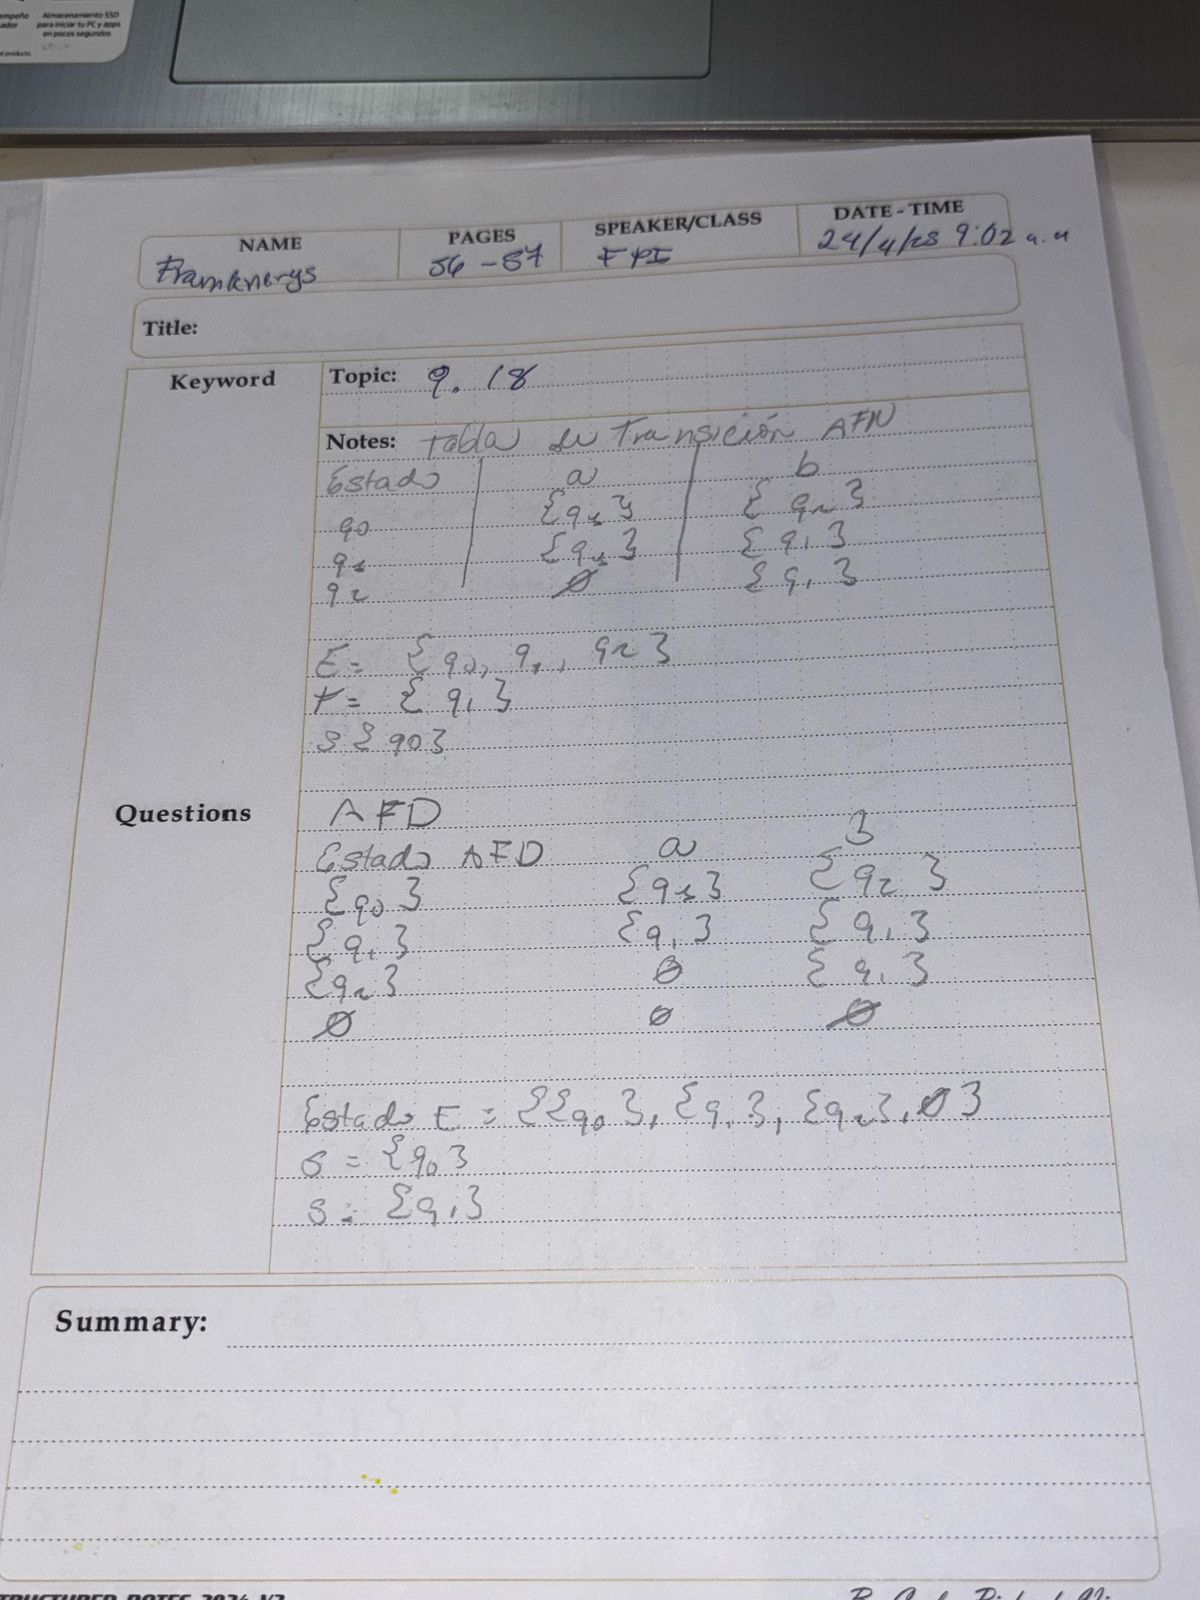 Almacenamiento SSD
para iniciar tu PC y apps
en pocos segundos
NAME PAGES SPEAKER/CLASS DATE - TIME
Framknerys 56 - 57 FPI 24/4/25 9:02 a.m
Title:
Keyword
Topic: 9. 18
Notes: tabla de Transición AFN
Estado a b
q0 {q1} {q2}
q1 {q1} {q1}
q2 ∅ {q1}
E = {q0, q1, q2}
F = {q1}
S {q0}
Questions
AFD
Estado AFD a B
{q0} {q1} {q2}
{q1} {q1} {q1}
{q2} ∅ {q1}
∅ ∅ ∅
Estado E = {{q0}, {q1}, {q2}, ∅}
S = {q0}
S = {q1}
Summary: